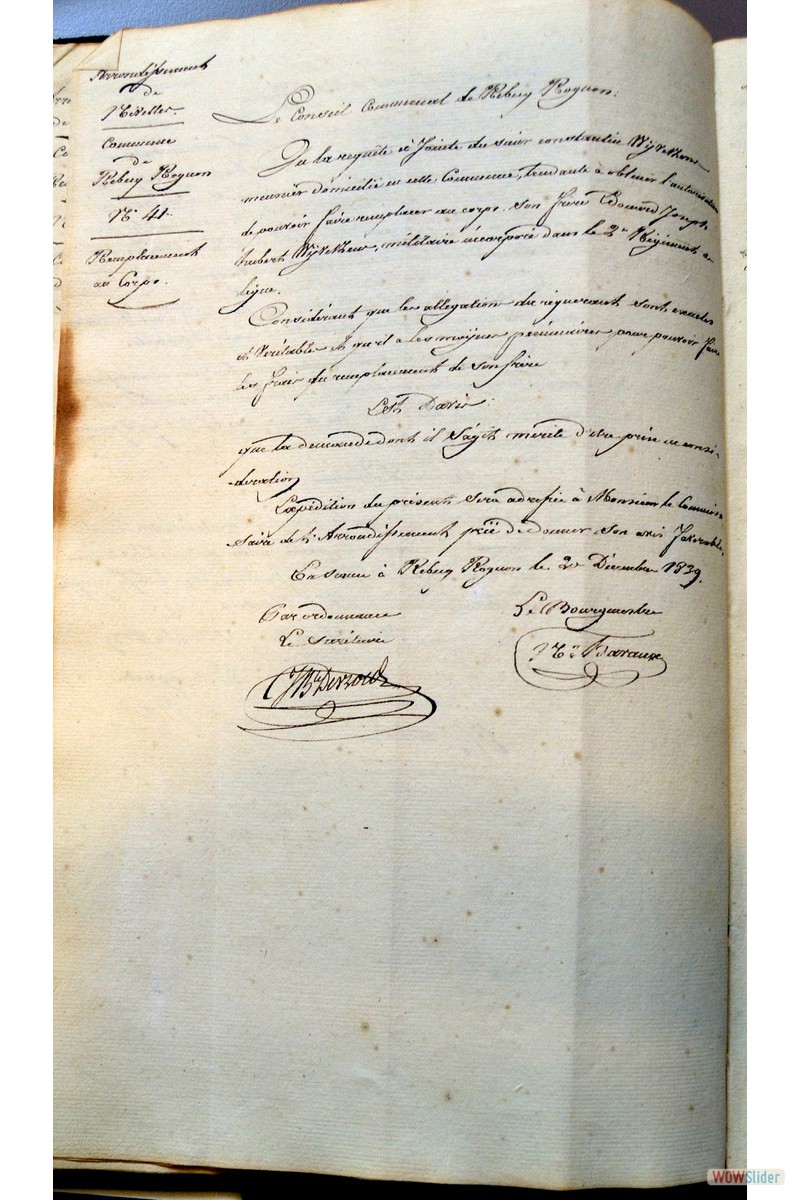 Arrondissement
de
Nivelles
Commune
de
Rebecq Rognon
N° 41
Remplacement
au Corps.
Le Conseil Communal de Rebecq Rognon.
Vu la requête à Jointe du sieur constantin
meunier domicilié en cette Commune, tendante à obtenir l'autorisation
de pouvoir faire remplacer au corps. Son frère Edouard Joseph
militaire incorporé dans le 2e Régiment de
ligne.
Considérant que les allegations du requerant sont exactes
et véritables et qu'il a les moyens pécuniaires pour pouvoir faire
les frais du remplacement de son frère
Est D'avis:
que la demande dont il s'agit mérite d'être prise en consi-
-dération
Expédition du présent sera adressée à Monsieur le Commis
saire de l'Arrondissement prié de donner son avis favorable.
En séance à Rebecq Rognon le Décembre 1839.
Par ordonnance
Le Secrétaire
Le Bourgmestre
WOWSlider